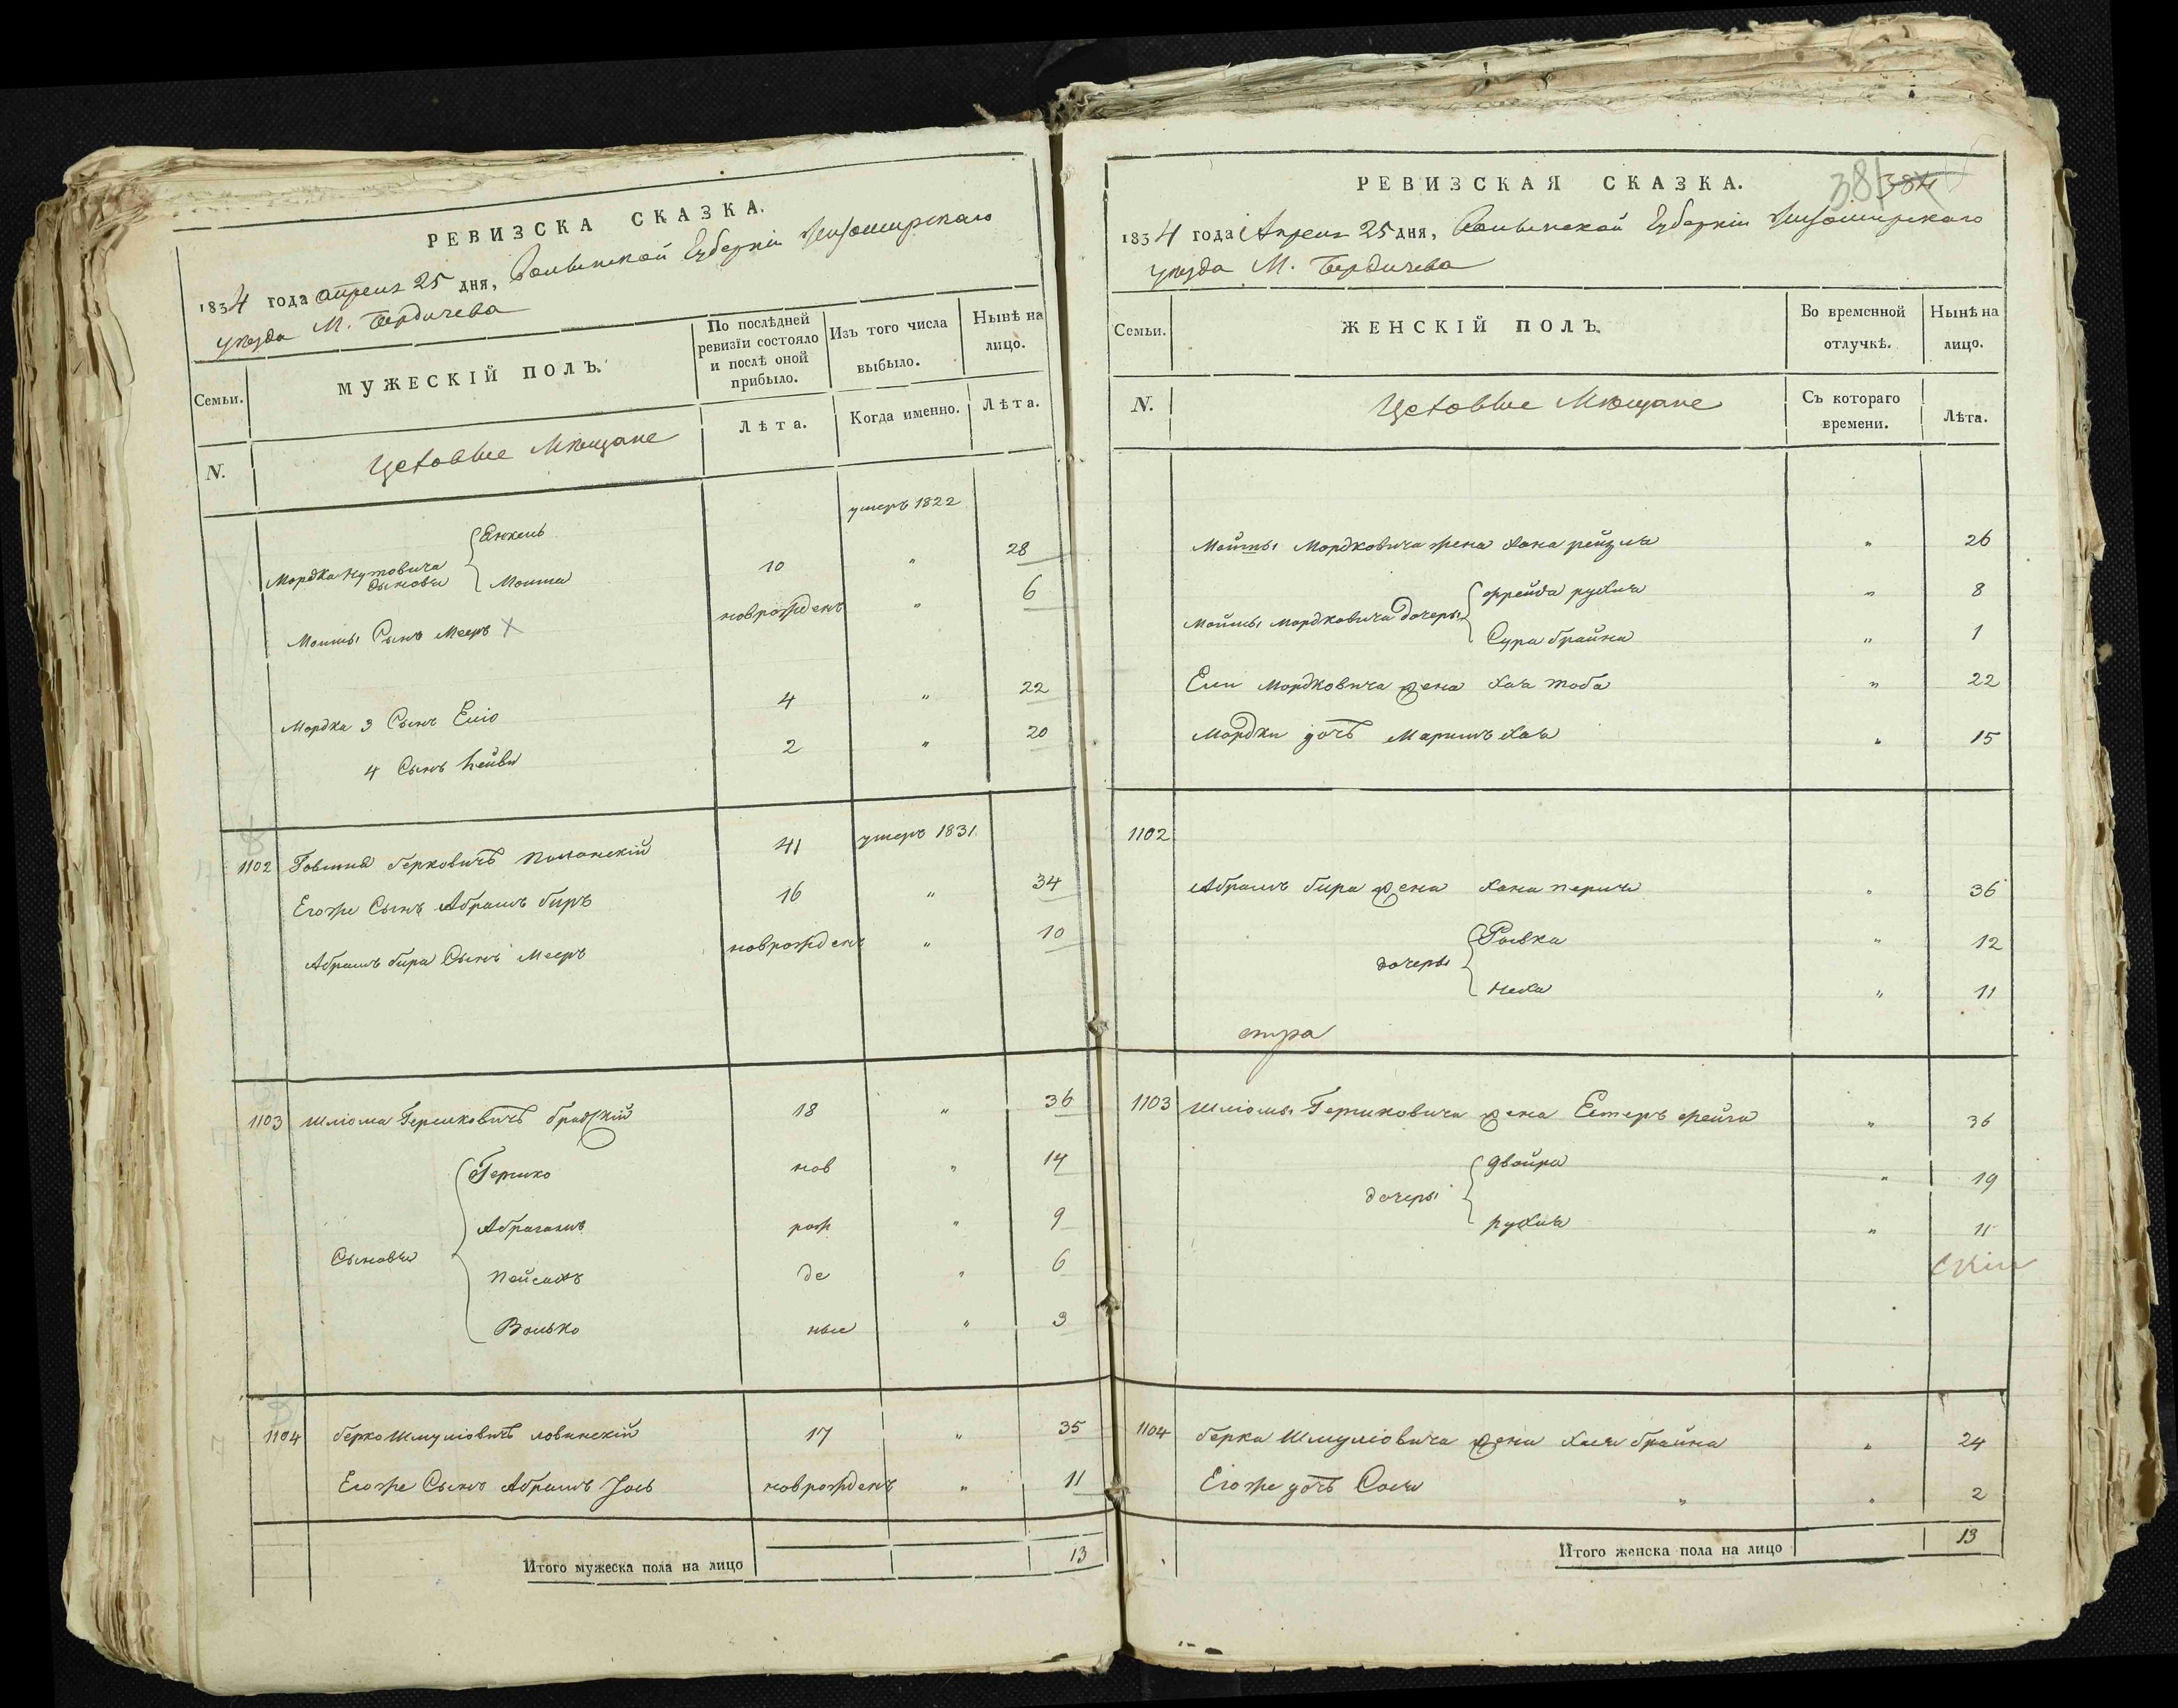 РЕВИЗСКА СКАЗКА.
1834 года апреля 25 дня, Волынской Губерніи Житомирскаго
уезда М. Бердичева
Семьи.
МУЖЕСКІЙ ПОЛЪ.
По послѣдней ревизіи состояло и послѣ оной прибыло.
Изъ того числа выбыло.
Нынѣ на лицо.
N.
Цеховые Мещане
Лѣта.
Когда именно.
Лѣта.
Мордка сыновья
умеръ 1822
Мошка 10 " 28
Мошки Сынъ Мееръ новорожденъ " 6
Мордка 3 Сынъ Еліо 4 " 22
4 Сынъ Лейба 2 " 20
1102 Берковичъ 41 умеръ 1831
Егоже Сынъ Абрамъ Биръ 16 " 34
Абрамъ бира Сынъ Мееръ новрожденъ " 10
1103 Шліома Гершковичъ брадскій 18 " 36
Сыновья
Гершко нов " 14
Абрагамъ рож " 9
Пейсахъ де " 6
Волько ные " 3
1104 берко Шмуліовичъ ловинскій 17 " 35
Егоже Сынъ Абрамъ Іось новрожденъ " 11
Итого мужеска пола на лицо 13
РЕВИЗСКАЯ СКАЗКА.
381 384
1834 года Апреля 25 дня, Волынской Губерніи Житомирскаго
уезда М. Бердичева
Семьи.
ЖЕНСКІЙ ПОЛЪ.
Во временной отлучкѣ.
Нынѣ на лицо.
N.
Цеховые Мещане
Съ котораго времени.
Лѣта.
Мошки Мордковича жена хана рейзля " 26
Мошки мордковича дочеры
фрейда рухля " 8
Сура брайна " 1
Ели Мордковича жена хая тоба " 22
Мордки дочь Маримъ хая " 15
1102
Абрамъ бира жена хана перля " 36
дочеры
Рывка " 12
неха " 11
1103 Шліомы Гершковича жена Естеръ фейга " 36
дочеры
двойра " 19
рухля " 11
1104 берка Шмуліовича жена хая брайна " 24
Егоже дочь Сося " " 2
Итого женска пола на лицо 13